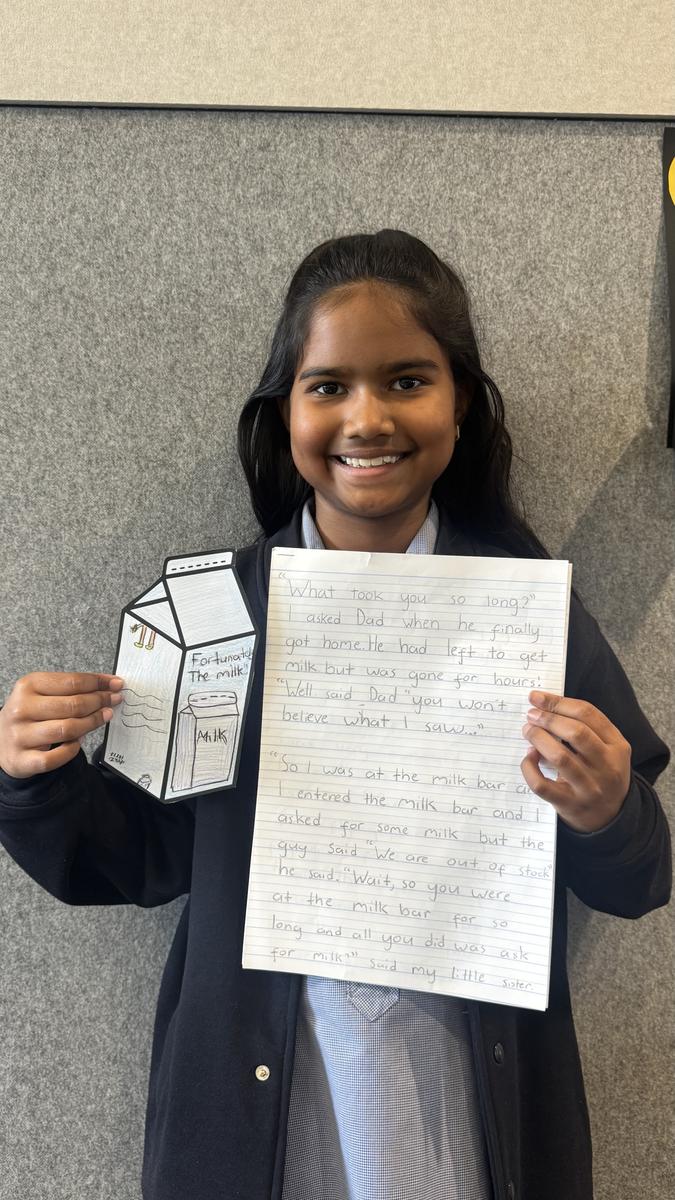 Fortunately
The milk"
Milk
"What took you so long?"
I asked Dad when he finally
got home. He had left to get
milk but was gone for hours!
"Well said Dad "you won't
believe what I saw..."
"So I was at the milk bar
I entered the milk bar and I
asked for some milk but the
guy said "We are out of stock"
he said. "Wait, so you were
at the milk bar for so
long and all you did was ask
for milk?" said my little sister.